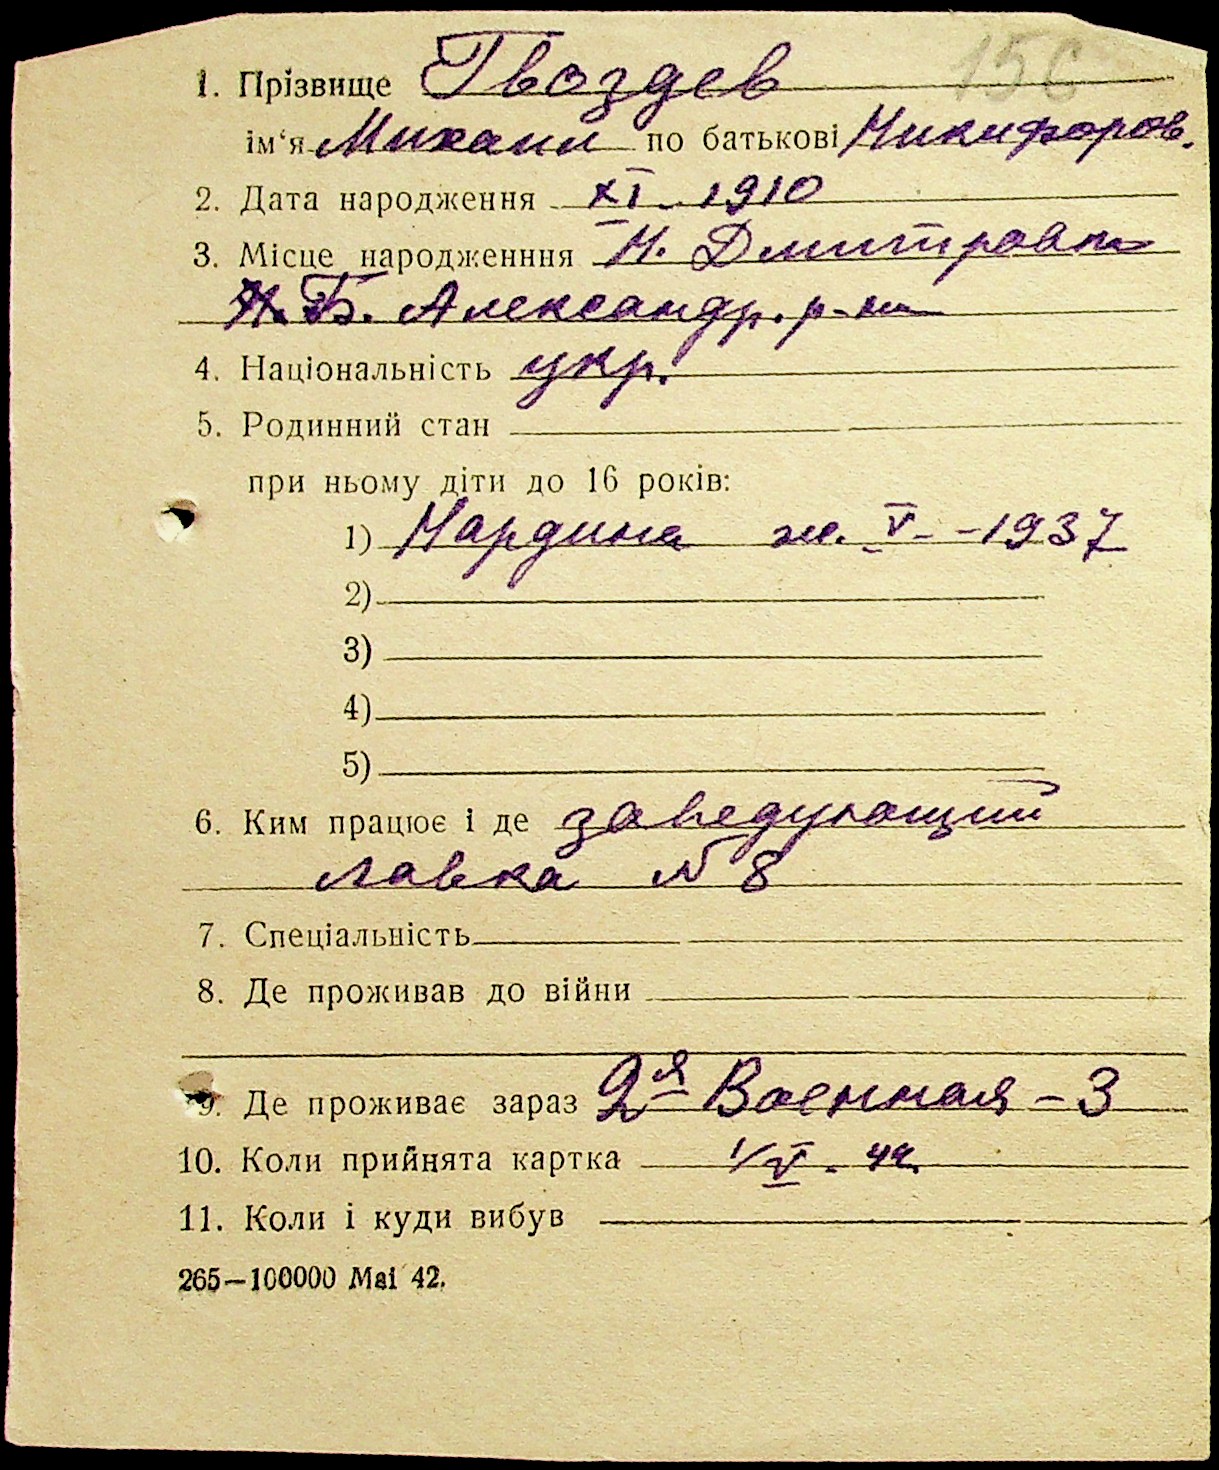 156
1. Прізвище Гвоздев
ім‘я Михаил по батькові Никифоров.
2. Дата народження XI - 1910
3. Місце народженння Н. Дмитровка
Б. Александр. р-на
4. Національність укр.
5. Родинний стан
при ньому діти до 16 років:
1) Нардина ж. V - 1937
2)
3)
4)
5)
6. Ким працює і де заведующий
лавка № 8
7. Спеціальність
8. Де проживав до війни
9. Де проживає зараз 2я Военная - 3
10. Коли прийнята картка 1/V - 42.
11. Коли і куди вибув
265—100000 Mai 42.